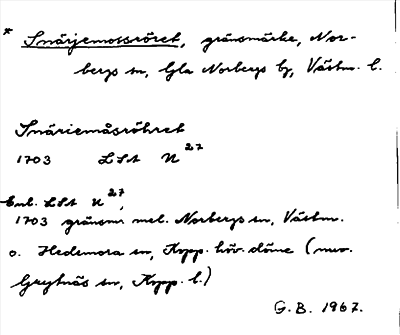 * Snärjemossröret, gränsmärke, Nor-
bergs sn, Gla Norbergs bg, Västm. l.
Snäriemåsröhret
1703 LSA U 27
Enl. LSA U 27,
1703 gränsm mel. Norbergs sn, Västm.
o. Hedemora sn, Kopp. höv. döme (nuv.
Grytnäs sn, Kopp. l.)
G. B. 1967.